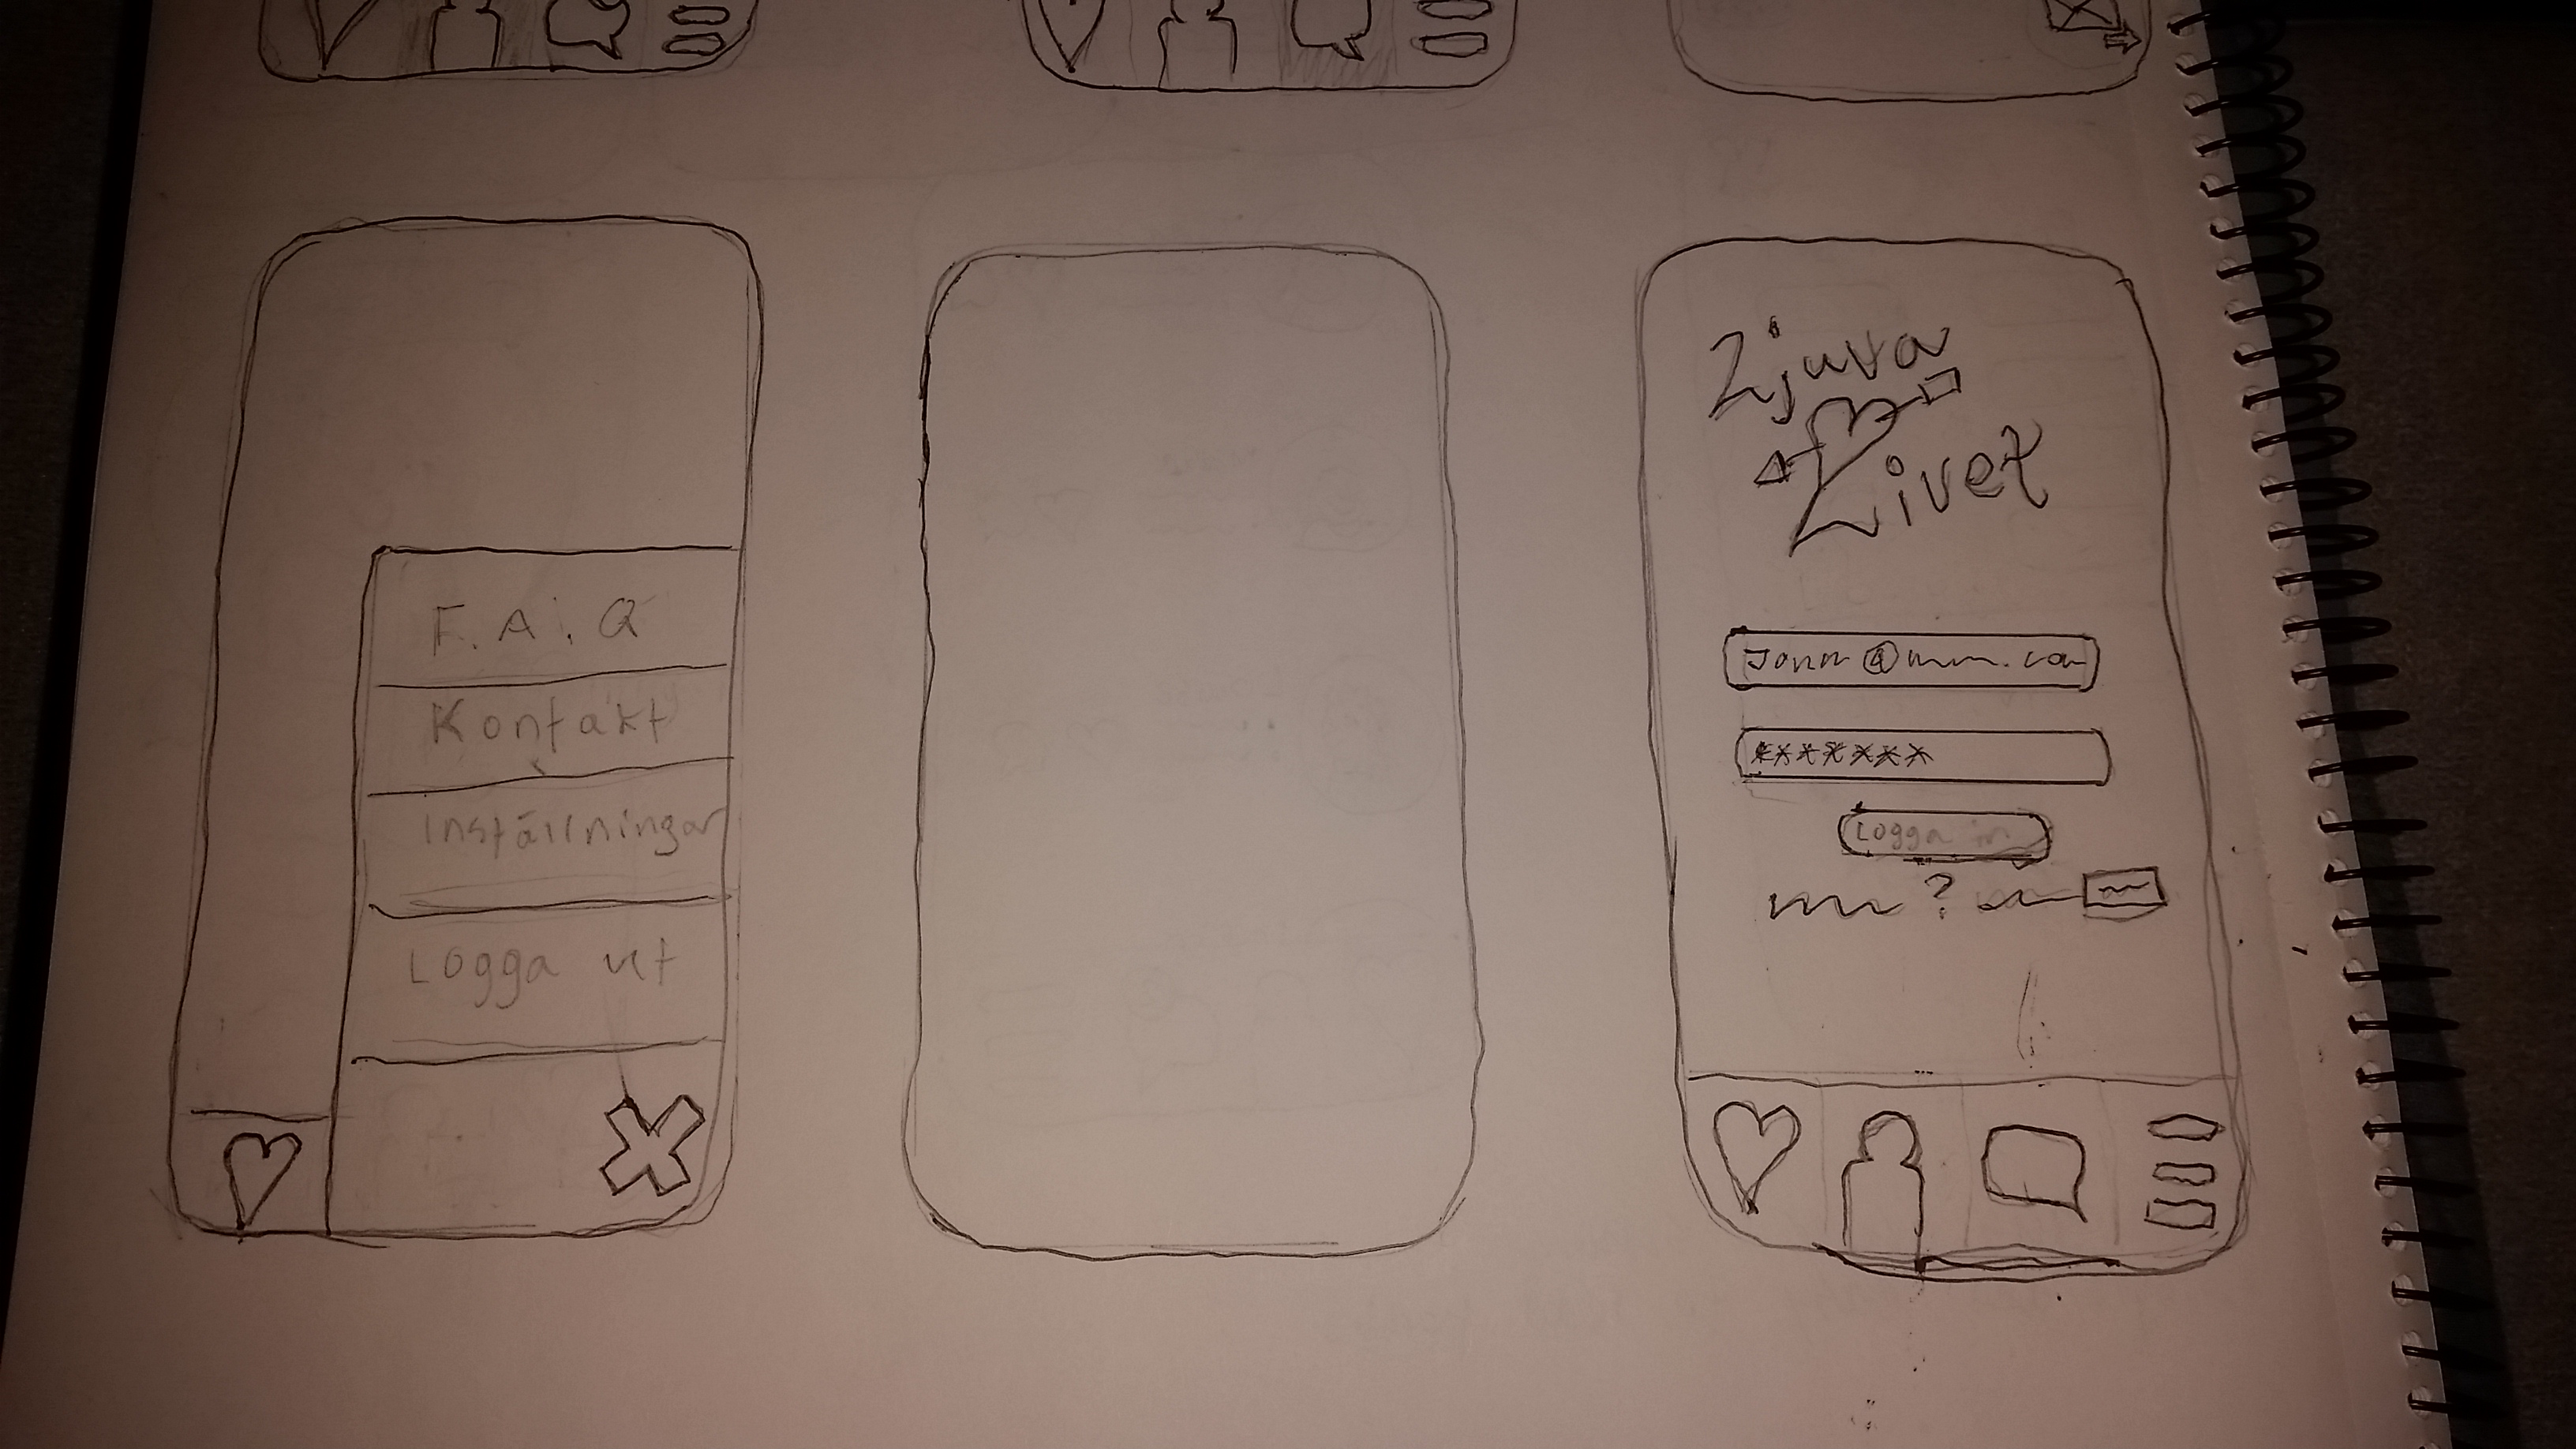 F.A.Q
Kontakt
Inställningar
Logga ut
Ljuva
Livet
*******
Logga in
?